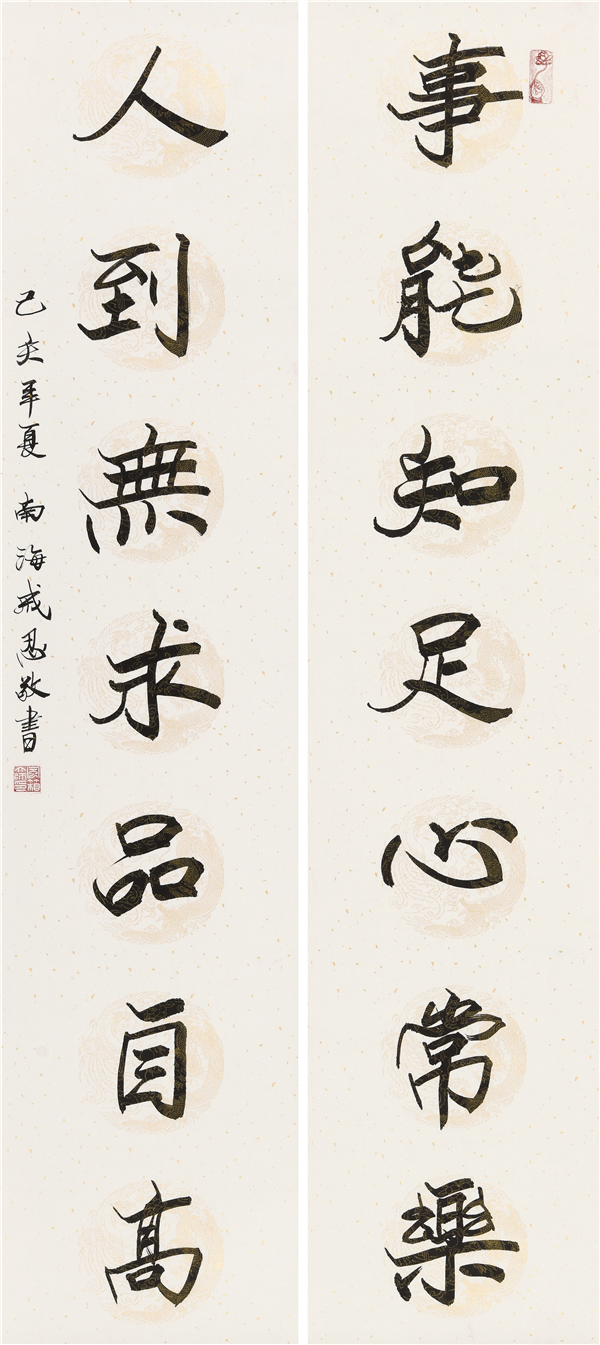 事能知足心常樂
人到無求品自高
己亥年夏 南海戒忍敬書